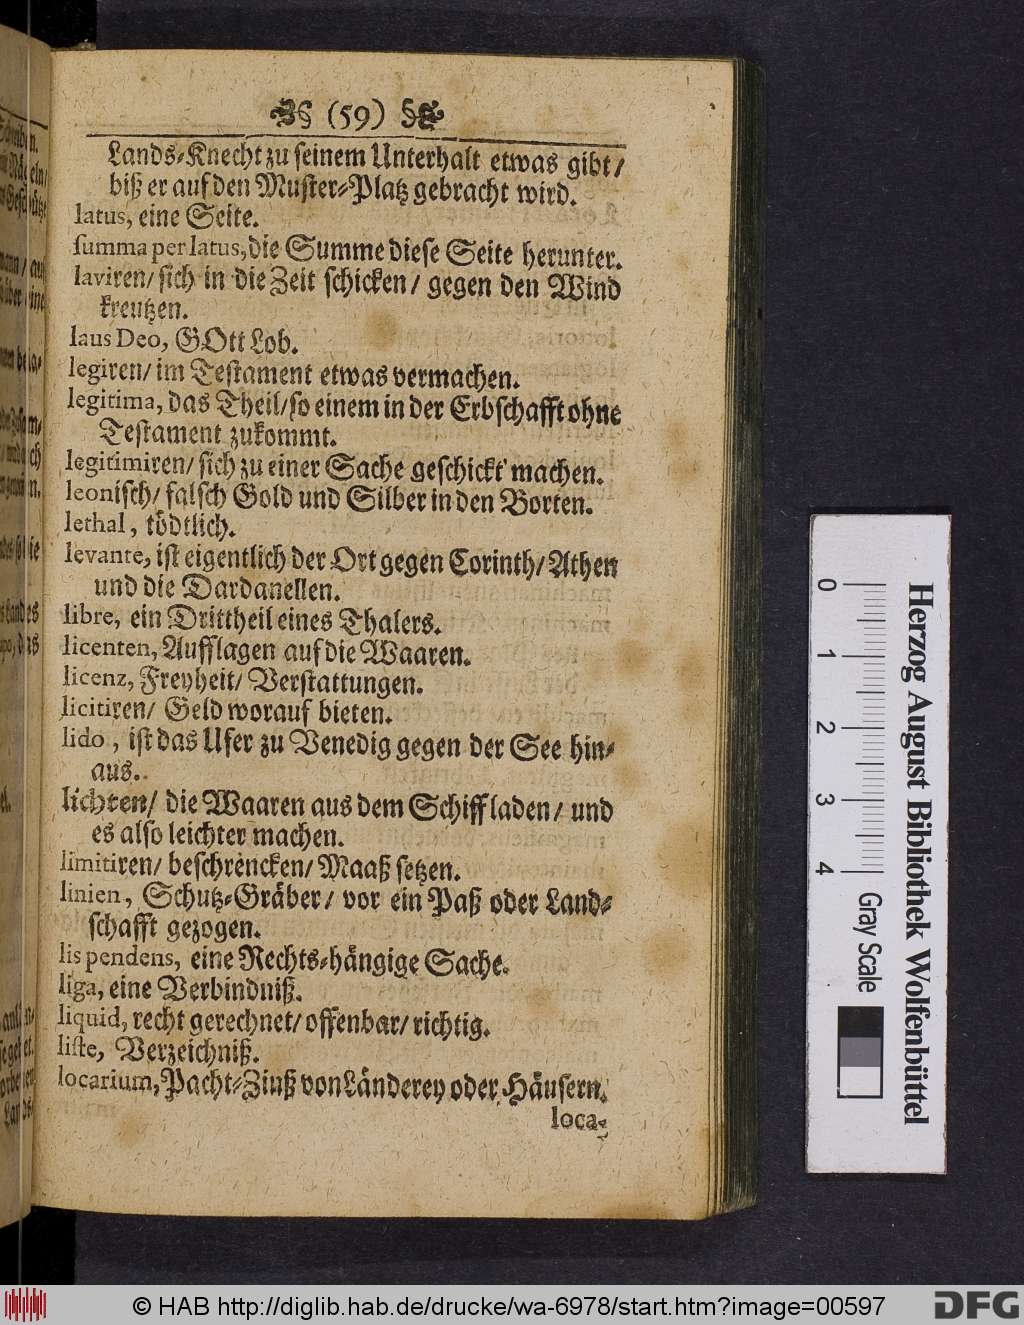 (59)
Lands-Knecht zu seinem Unterhalt etwas gibt/
biß er auf den Muster-Platz gebracht wird.
latus, eine Seite.
summa per latus, die Summe diese Seite herunter.
laviren/ sich in die Zeit schicken/ gegen den Wind
kreutzen.
laus Deo, GOtt Lob.
legiren/ im Testament etwas vermachen.
legitima, das Theil/ so einem in der Erbschafft ohne
Testament zukommt.
legitimiren/ sich zu einer Sache geschickt machen.
leonisch/ falsch Gold und Silber in den Borten.
lethal, tödtlich.
levante, ist eigentlich der Ort gegen Corinth/ Athen
und die Dardanellen.
libre, ein Drittheil eines Thalers.
licenten, Aufflagen auf die Waaren.
licenz, Freyheit/ Verstattungen.
licitiren/ Geld worauf bieten.
lido, ist das Ufer zu Venedig gegen der See hin-
aus.
lichten/ die Waaren aus dem Schiff laden/ und
es also leichter machen.
limitiren/ beschrencken/ Maaß setzen.
linien, Schutz-Gräber/ vor ein Paß oder Land-
schafft gezogen.
lis pendens, eine Rechts-hängige Sache.
liga, eine Verbindniß.
liquid, recht gerechnet/ offenbar/ richtig.
liste, Verzeichniß.
locarium, Pacht-Zinß von Länderey oder Häusern.
loca-
0 1 2 3 4 Gray Scale
Herzog August Bibliothek Wolfenbüttel
© HAB http://diglib.hab.de/drucke/wa-6978/start.htm?image=00597
DFG